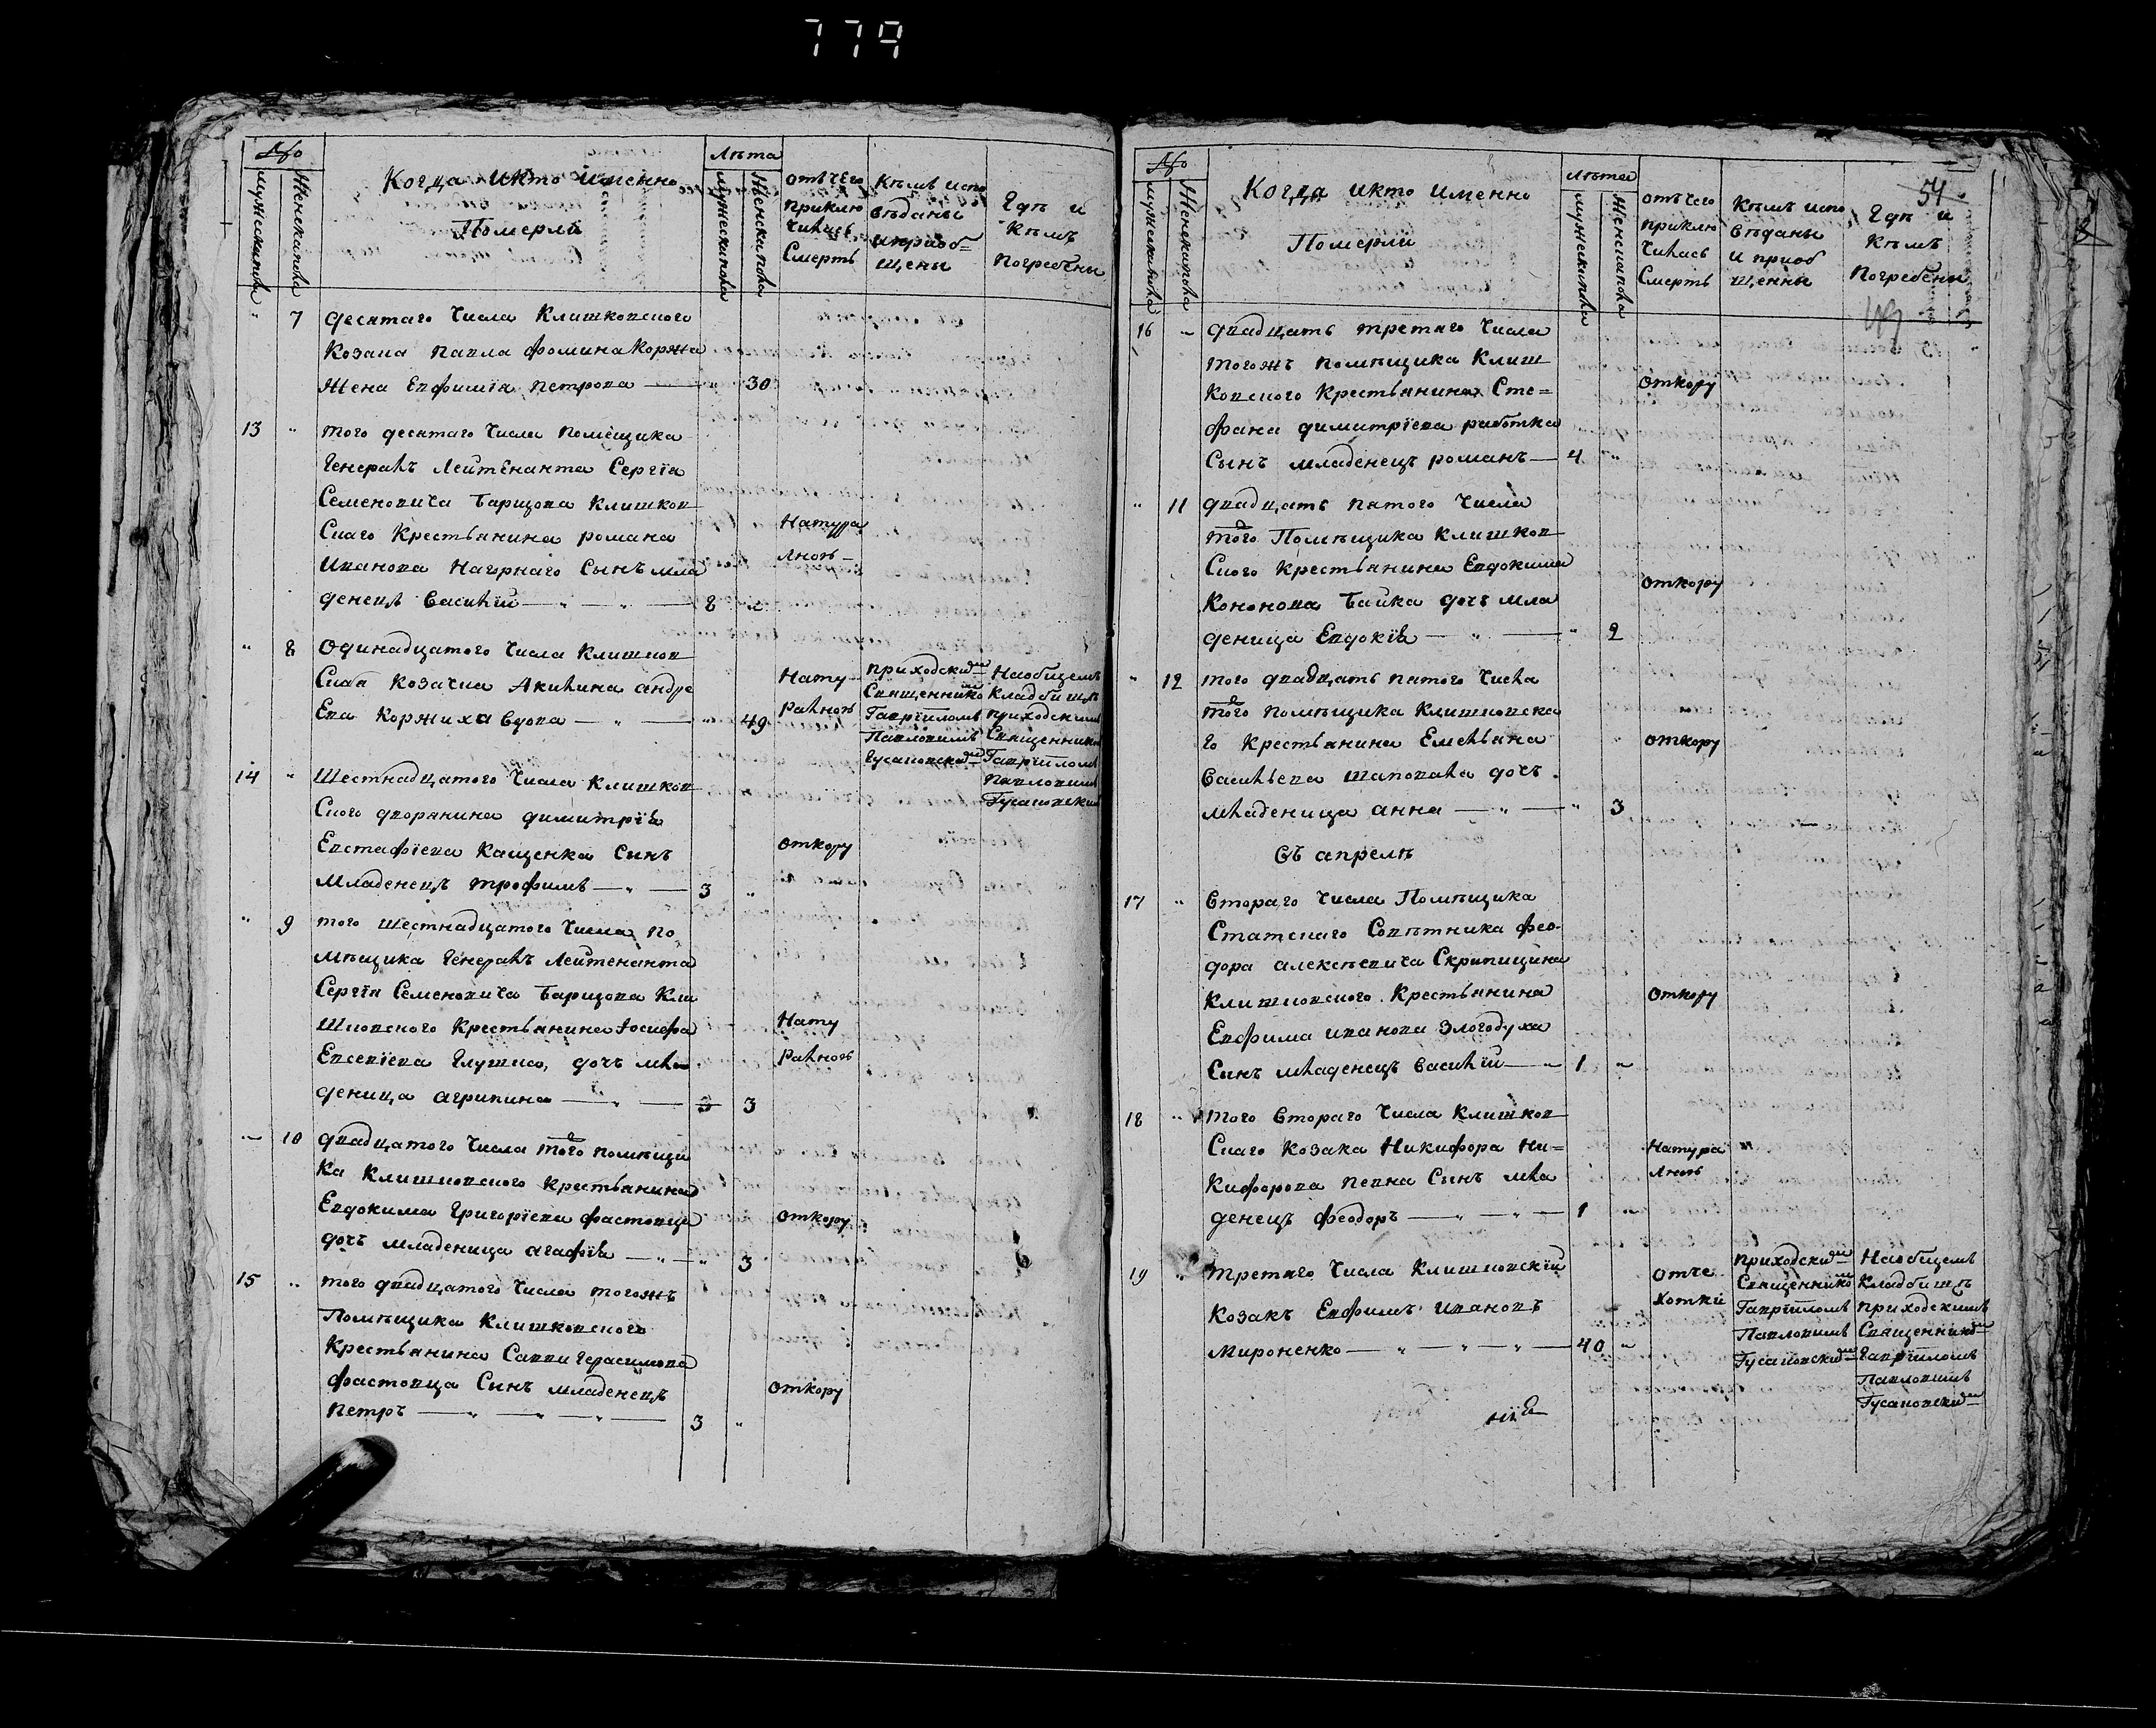 779
№
мужеска пола
Женска пола
Когда и кто имянно
Померли
Лѣта
мужеска пола
Женска пола
отъ чего
приклю
чилась
Смерть
Кѣмъ испо
вѣданы
и приоб
щены
Гдѣ и
Кѣмъ
Погребены
7 десятаго Числа Клишковского
Козака павла фомина Коржа
Жена Евфимія петрова 30
13 " того десятаго Числа помѣщика
Генералъ Лейтенанта Сергія
Семеновича Барщова Клишков
Скаго Крестьянина романа
Иванова Нагорнаго Сынъ мла
денецъ Василій 8 "
Натура
лною
" 8 Одинадцатого Числа Клишков
Ская Козачка Акилина андре
ева Коржиха вдова " 49
Нату
ралною
приходским
Священнико
Гавріиломъ
Павловимъ
Гусаковским
На общемъ
Кладбищѣ
приходскимъ
Священнико
Гавріиломъ
Павловимъ
Гусаковским
14 " Шестнадцатого Числа Клишков
Ского дворянина димитрія
Евстафіева Кащенка Синъ
Младенецъ трофимъ 3 "
от кору
" 9 того шестнадцатого Числа по
мѣщика Генералъ Лейтенанта
Сергія Семеновича Барщова Кли
шковского Крестьянина Іосифа
Евсевіева Глушко, дочъ мла
деница агрипина 3
Нату
ралною
10 двадцатого Числа того помѣщи
ка Клишковского Крестьянина
Евдокима Григоріева фастовца
дочъ младеница агафія " 3
от кору
15 " того двадцатого Числа тогожъ
Помѣщика Клишковского
Крестьянина Саввы Герасимова
фастовца Синъ младенецъ
петръ 3 "
от кору
№
мужеска пола
Женска пола
Когда и кто именно
Померли
лѣта
мужеска пола
Женска пола
отъ чего
приклю
чилась
Смерть
Кѣмъ испо
вѣданы
и приоб
щенны
54
Гдѣ и
Кѣмъ
Погребены
16 двадцать третаго Числа
тогожъ помѣщика Клиш
ковского Крестьянина Сте=
фана димитріева работка
Сынъ младенецъ романъ 4 "
от кору
" 11 двадцать пятого Числа
того Помѣщика Клишков
Ского Крестьянина Евдокима
Кононова Байка дочъ мла
деница Евдокія " 2
от кору
" 12 того двадцать пятого Числа
того помѣщика Клишковска
го Крестьянина Емеліана
васильева шаповала дочъ
младеница анна " 3
от кору
въ апрелѣ
17 " втораго числа Помѣщика
Статскаго Совѣтника фео-
дора алексѣевича Скрипицина
Клишковского Крестьянина
Евфима иванова Злогодуха
Синъ младенецъ василій 1 "
от кору
18 " того втораго Числа Клишков
Скаго Козака Никифора Ни=
кифорова певна Синъ мла
денецъ феодоръ 1 "
Натура
лною
19 " третяго Числа Клишковскій
Козакъ Евфимъ ивановъ
Мироненко 40 "
от че
хотки
приходским
Священнико
Гавріиломъ
Павловимъ
Гусаковским
На общемъ
Кладбищѣ
приходскимъ
Священником
Гавріиломъ
Павловимъ
Гусаковским